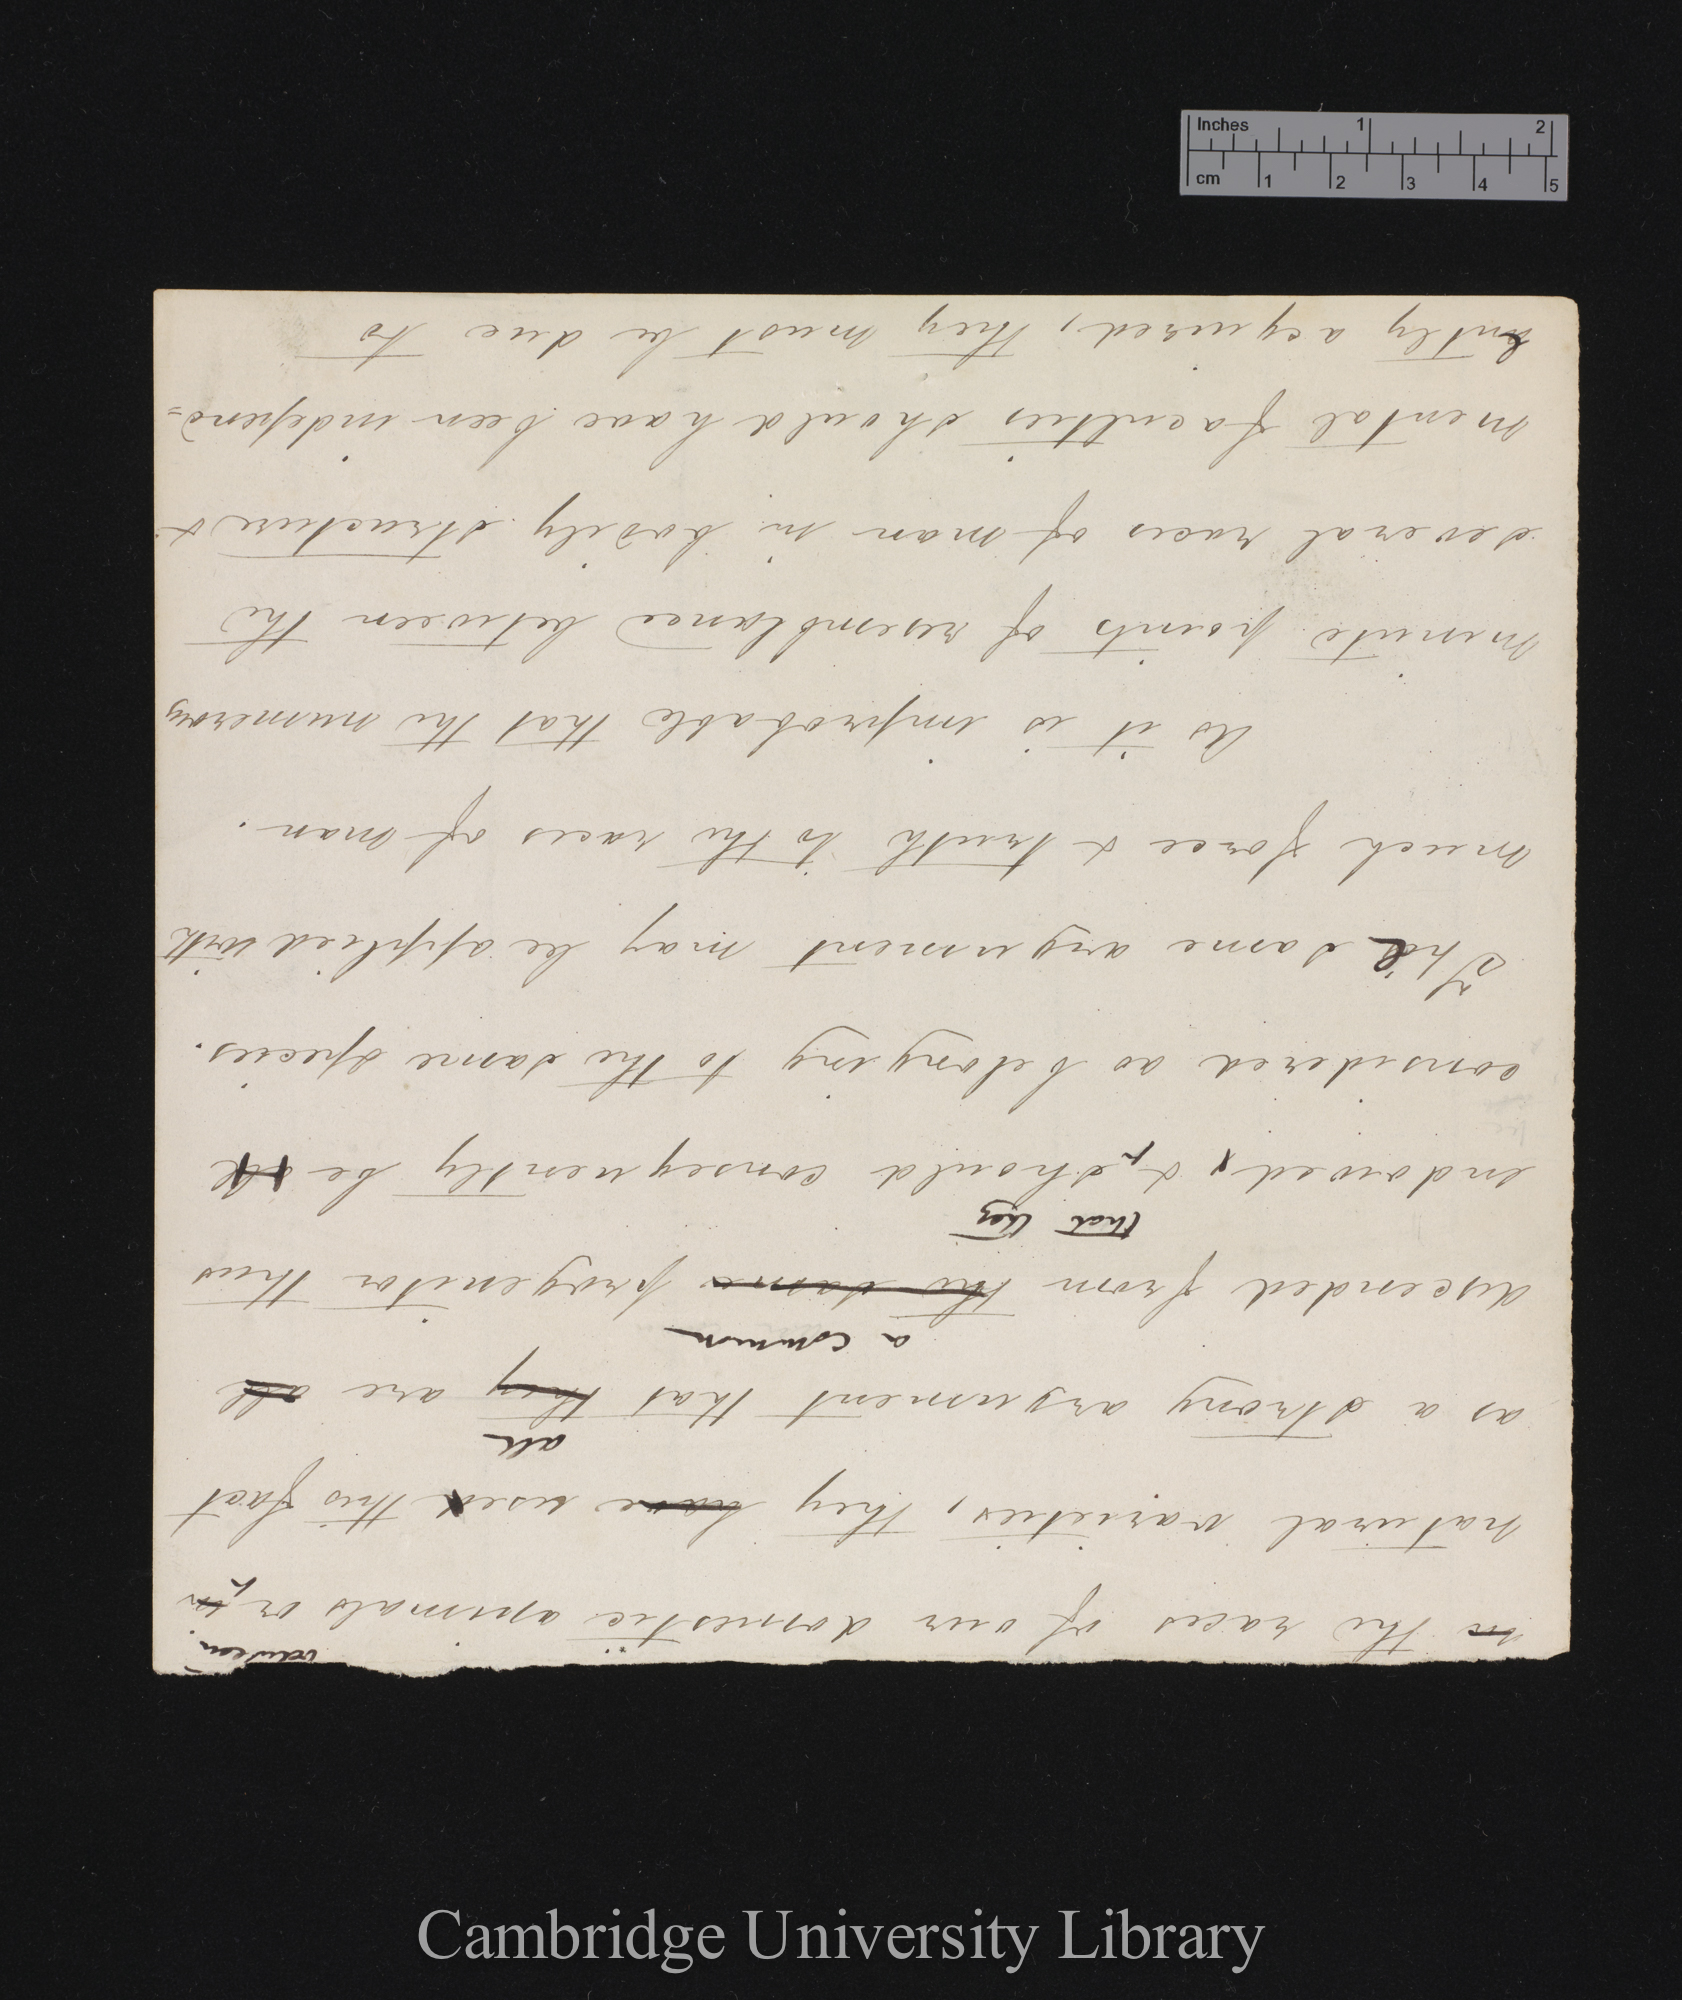 Inches 1 2
cm 1 2 3 4 5
between
in the races of our domestic animals or in
natural varieties, they have used this fact
all
as a strong argument that they are all
a common
descended from the same progenitor thus
that they
endowed, & should consequently be all
considered as belonging to the same species.
The same argument may be applied with
much force & truth to the races of man.
As it is improbable that the numerous
minute points of resemblance between the
several races of man in bodily structure &
mental faculties should have been independ=
ently acquired, they must be due to
Cambridge University Library